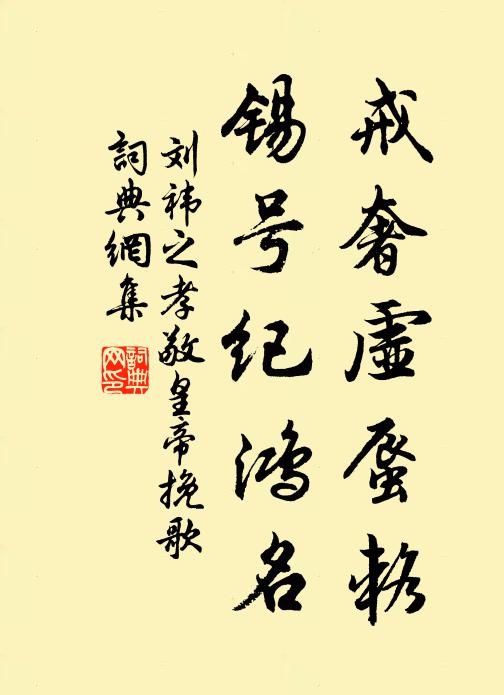 戒奢虚蜃辂
锡号纪鸿名
刘祎之孝敬皇帝挽歌
詞典網集
詞典
网印